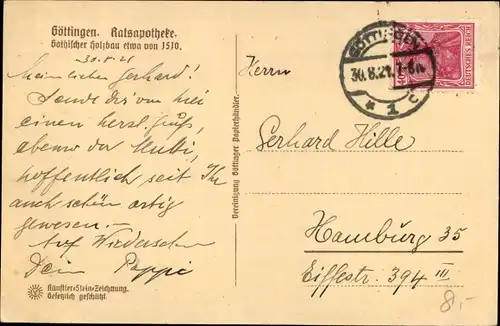 Göttingen. Ratsapotheke.
Gothischer Holzbau etwa von 1510.
30.8.21
Mein lieber Gerhard!
Sende dir von hier
einen herzl. Gruß,
ebenso der Mutti,
hoffentlich seid Ihr
auch schön artig
gewesen. —
Auf Wiedersehen
Dein Pappi
Künstler-Stein-Zeichnung.
Gesetzlich geschützt.
Vereinigung Göttinger Papierhändler.
GÖTTINGEN
30.8.21. 1-6N
* 1 c
DEUTSCHES REICH
40
Herrn
Gerhard Hille
Hamburg 35
Eiffestr. 394 III
8.-